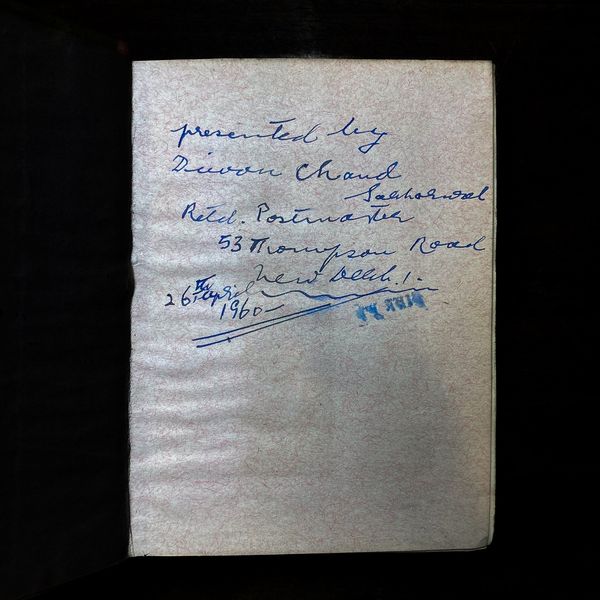 presented by
Diwan Chand
Retd. Postmaster
53 Thompson Road
New Delhi.1.
26th April
1960